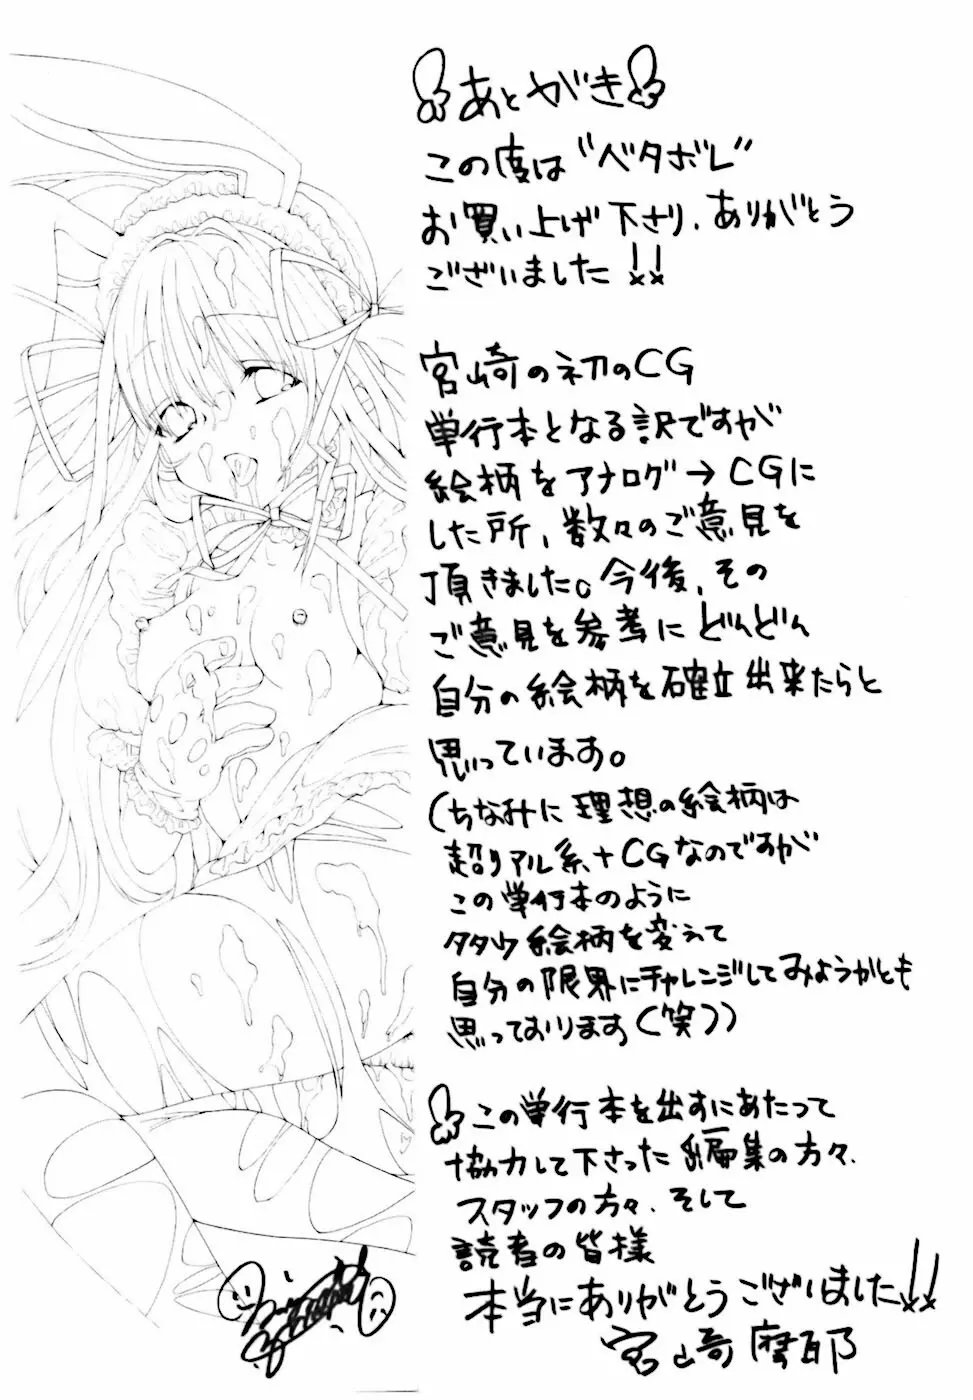 あとがき
この度は“ベタボレ”
お買い上げ下さり、ありがとう
ございました!!
宮崎の初のCG
単行本となる訳ですが
絵柄をアナログ→CGに
した所、数々のご意見を
頂きました。今後、その
ご意見を参考にどんどん
自分の絵柄を確立出来たらと
思っています。
(ちなみに理想の絵柄は
超リアル系+CGなのですが
この単行本のように
タタウ絵柄を変えて
自分の限界にチャレンジしてみようかとも
思っております(笑))
この単行本を出すにあたって
協力して下さった編集の方々、
スタッフの方々、そして
読者の皆様
本当にありがとうございました!!
宮崎摩耶